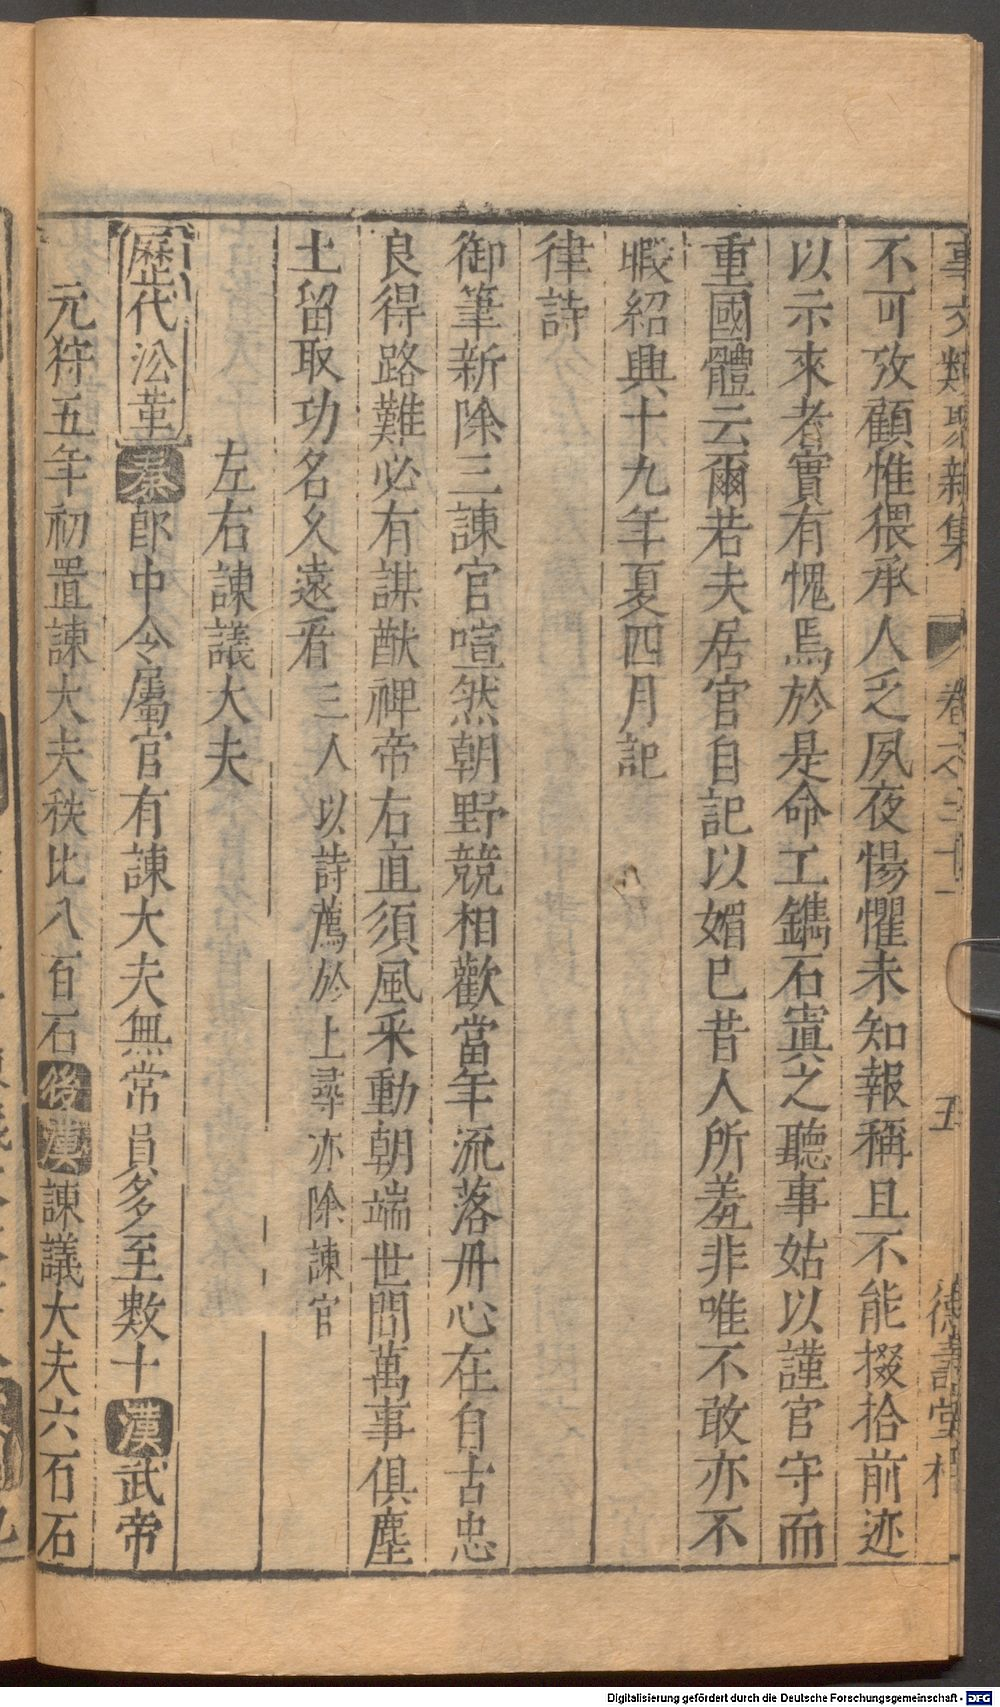 事文類聚新集 卷之二十一 五 德壽堂梓
不可攷顧惟猥承人乏夙夜惕懼未知報稱且不能掇拾前迹
以示來者實有愧焉於是命工鐫石寘之聽事姑以謹官守而
重國體云爾若夫居官自記以媚已昔人所羞非唯不敢亦不
暇紹興十九年夏四月記
律詩
御筆新除三諫官喧然朝野競相歡當年流落丹心在自古忠
良得路難必有謀猷裨帝右直須風采動朝端世間萬事俱塵
土留取功名久遠看三人以詩薦於上尋亦除諫官
左右諫議大夫
歷代沿革秦郎中令屬官有諫大夫無常員多至數十漢武帝
元狩五年初置諫大夫秩比八百石後漢諫議大夫六石石
Digitalisierung gefördert durch die Deutsche Forschungsgemeinschaft - DFG